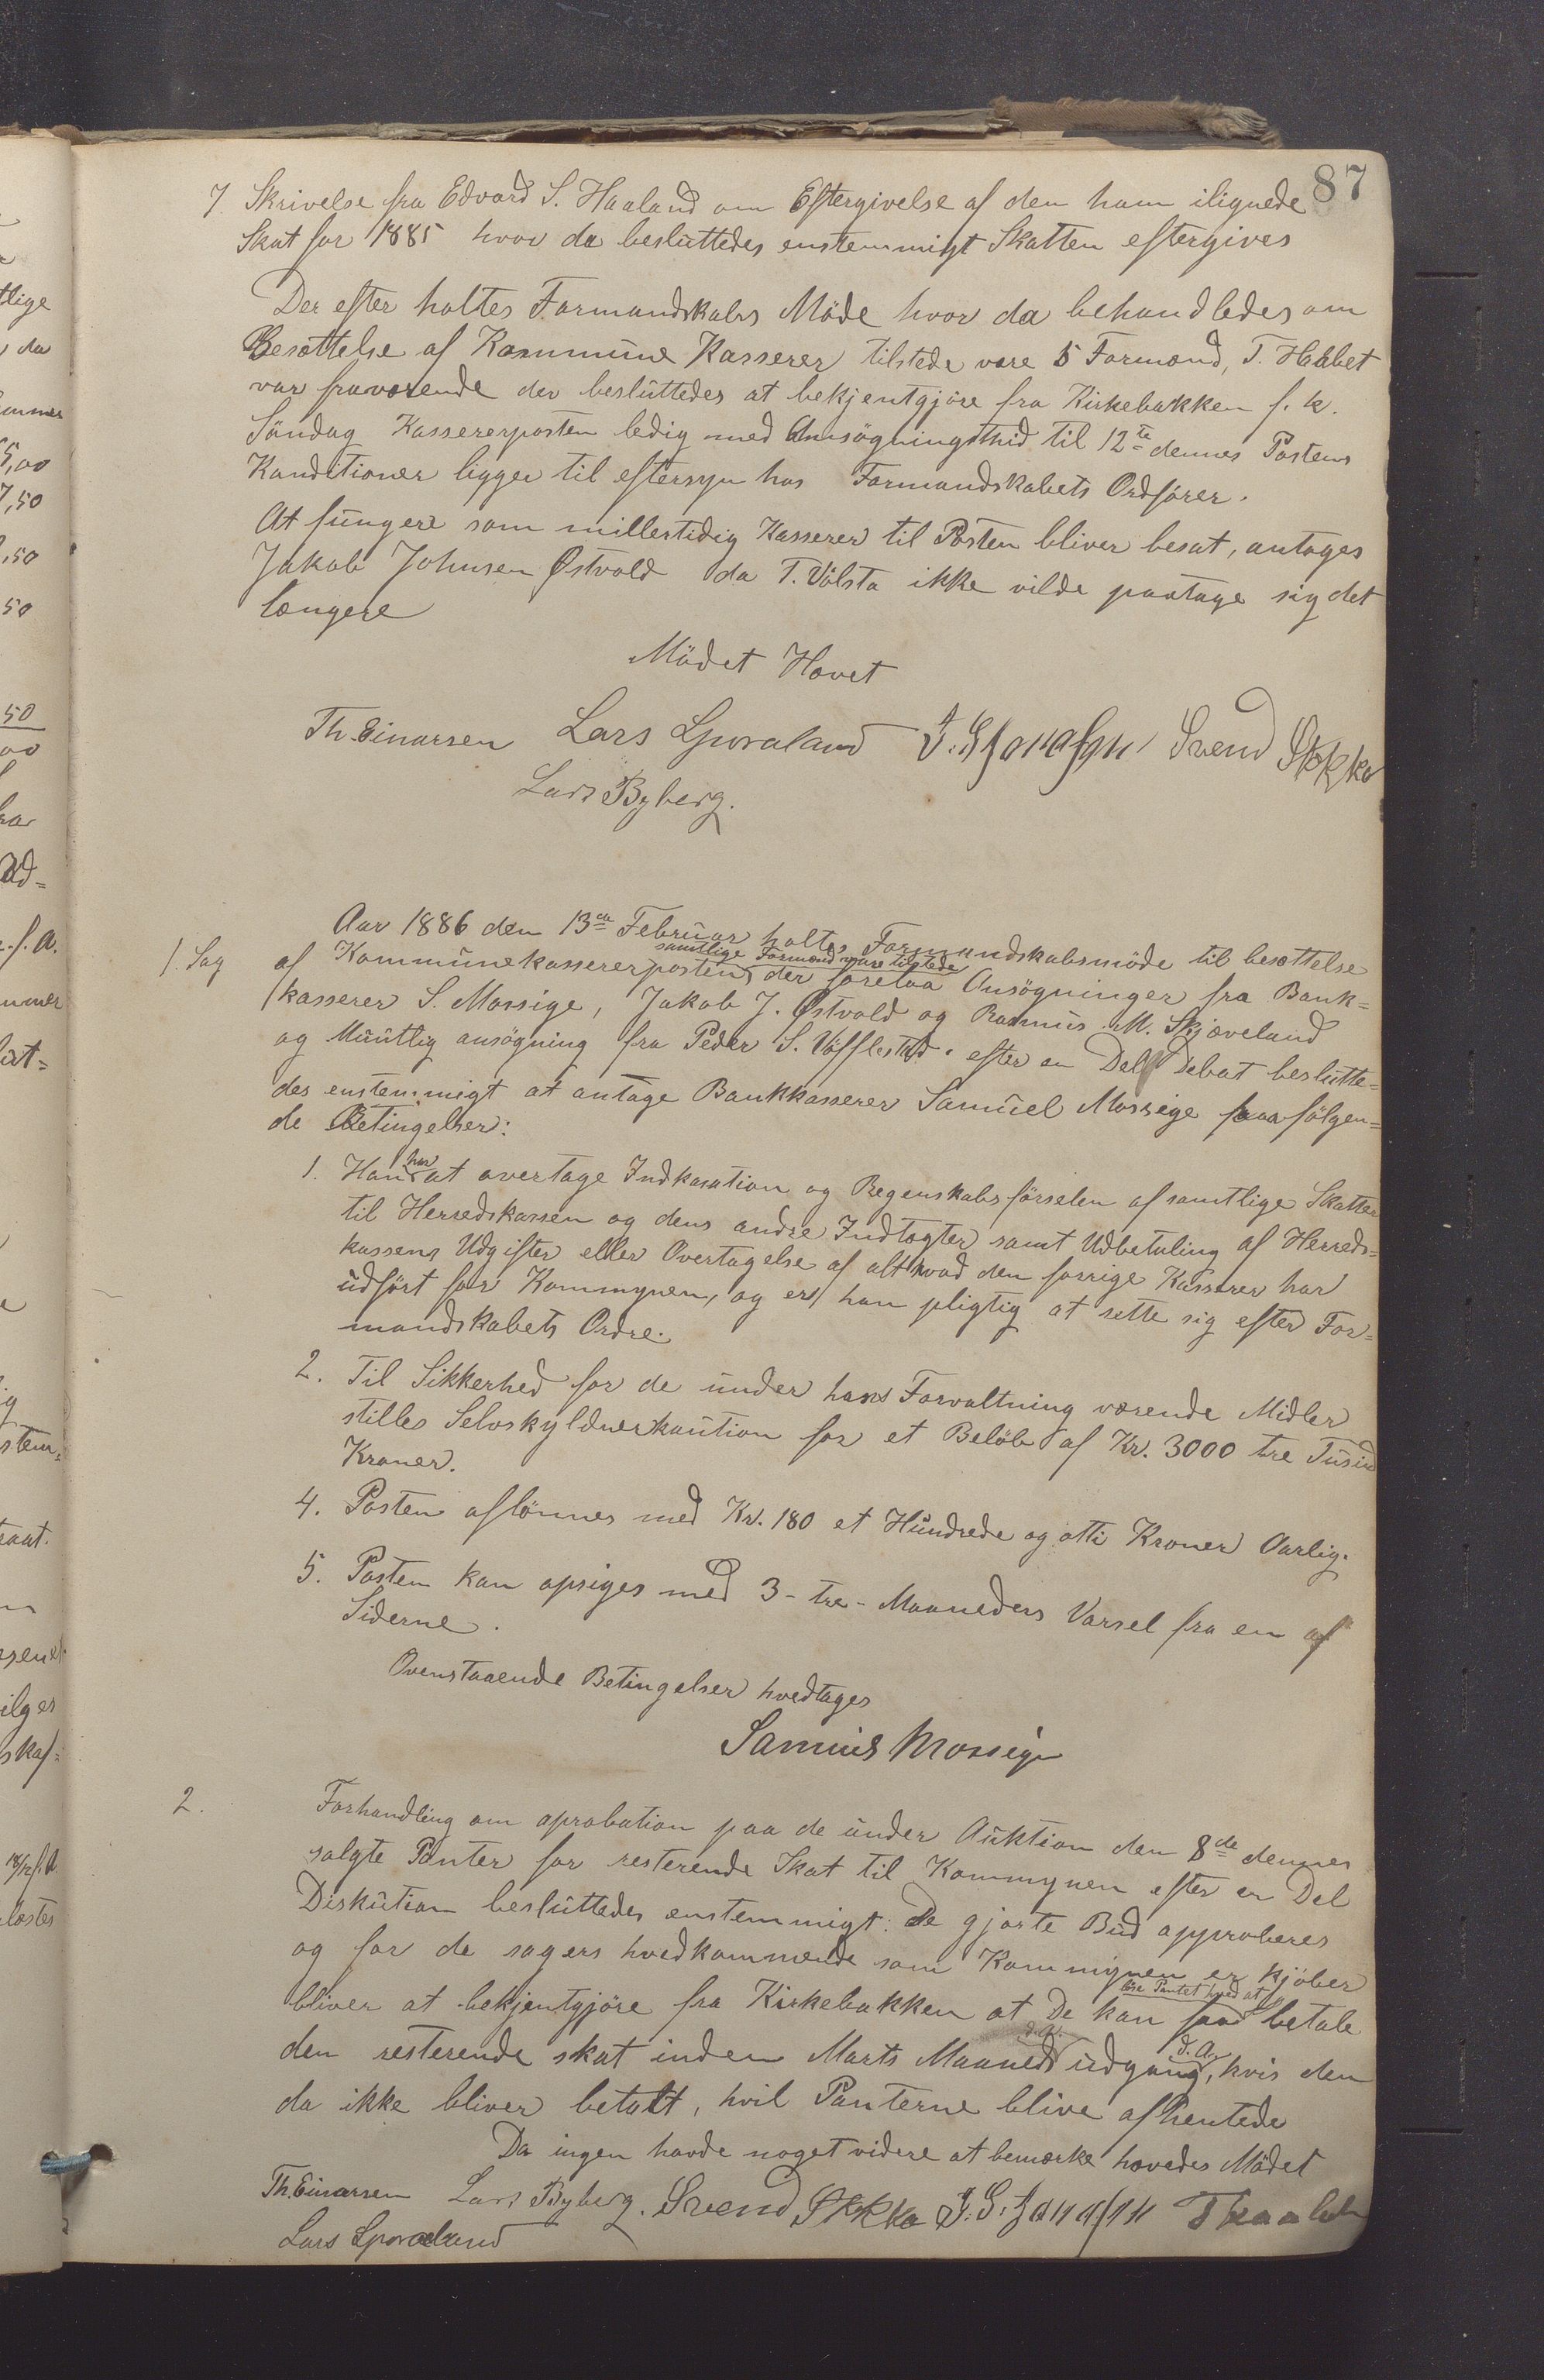 87
7 Skrivelse fra Edvard S. Haaland om Eftergivelse af den ham ilignede
Skat for 1885 hvor da besluttedes enstemmigt Skatten eftergives
Der efter holtes Formandskabs Møde hvor da behandledes om
Besættelse af Kommune Kasserer tilstede vare 5 Formænd, T. Haabet
var fraværende der besluttedes at bekjentgjøre fra Kirkebakken f. k.
Søndag Kassererposten ledig med Ansøgningsthid til 12te dennes Postens
Konditioner ligger til eftersyn hos Formandskabets Ordfører.
At fungere som millertidig Kasserer til Posten bliver besat, antages
Jakob Johnsen Østvold da T. Vølsta ikke vilde paatage sig det
længere
Mødet Hævet
Th. Einarsen Lars Sporaland J. G. Jonassen Svend Økka
Lars Byberg.
Aar 1886 den 13de Februar holtes Formandskabsmøde til besættelse
1. Sag af Kommunekassererposten samtlige Formænd vare tilstede der forelaa Ansøgninger fra Bank=
kasserer S. Mossige, Jakob J. Østvold og Rasmus M. Skjæveland
og Muntlig ansøgning fra Peder S. Vølstad. efter en Del Debat beslutte=
des enstemmigt at antage Bankkasserer Samuel Mossige paa følgen=
de Betingelser:
1. Han har at overtage Indkasation og Regenskabsførselen af samtlige Skatter
til Herredskassen og dens andre Indtægter samt Udbetaling af Herreds=
kassens Udgifter eller Overtagelse af alt hvad den forrige Kasserer har
udført for Kommynen, og er han pligtig at rette sig efter For=
mandskabets Ordre.
2. Til Sikkerhed for de under hans Forvaltning værende Midler
stilles Selvskyldnerkaution for et Beløb af Kr. 3000 tre Tusind
Kroner.
4. Posten aflønnes med Kr. 180 et Hundrede og otti Kroner Aarlig.
5. Posten kan opsiges med 3 - tre - Maaneders Varsel fra en af
Siderne.
Ovenstaaende Betingelser hvedtages
Samuel Mossige
2. Forhandling om aprobation paa de under Auktion den 8de dennes
solgte Panter for resterende Skat til Kommynen efter en Del
Diskution besluttedes enstemmigt: De gjorte Bud approberes
og for de sagers hvedkommende som Kommynen er kjøber
bliver at bekjentgjøre fra Kirkebakken at De kan faa løse Pantet hved at betale
den resterende skat inden Marts Maaneds udgang d. A., hvis den
da ikke bliver betalt, hvil Panterne blive afhentede
Da ingen havde noget videre at bemærke hævedes Mødet
Th. Einarsen Lars Byberg. Svend Økka J. G. Jonassen T Haabet
Lars Sporaland